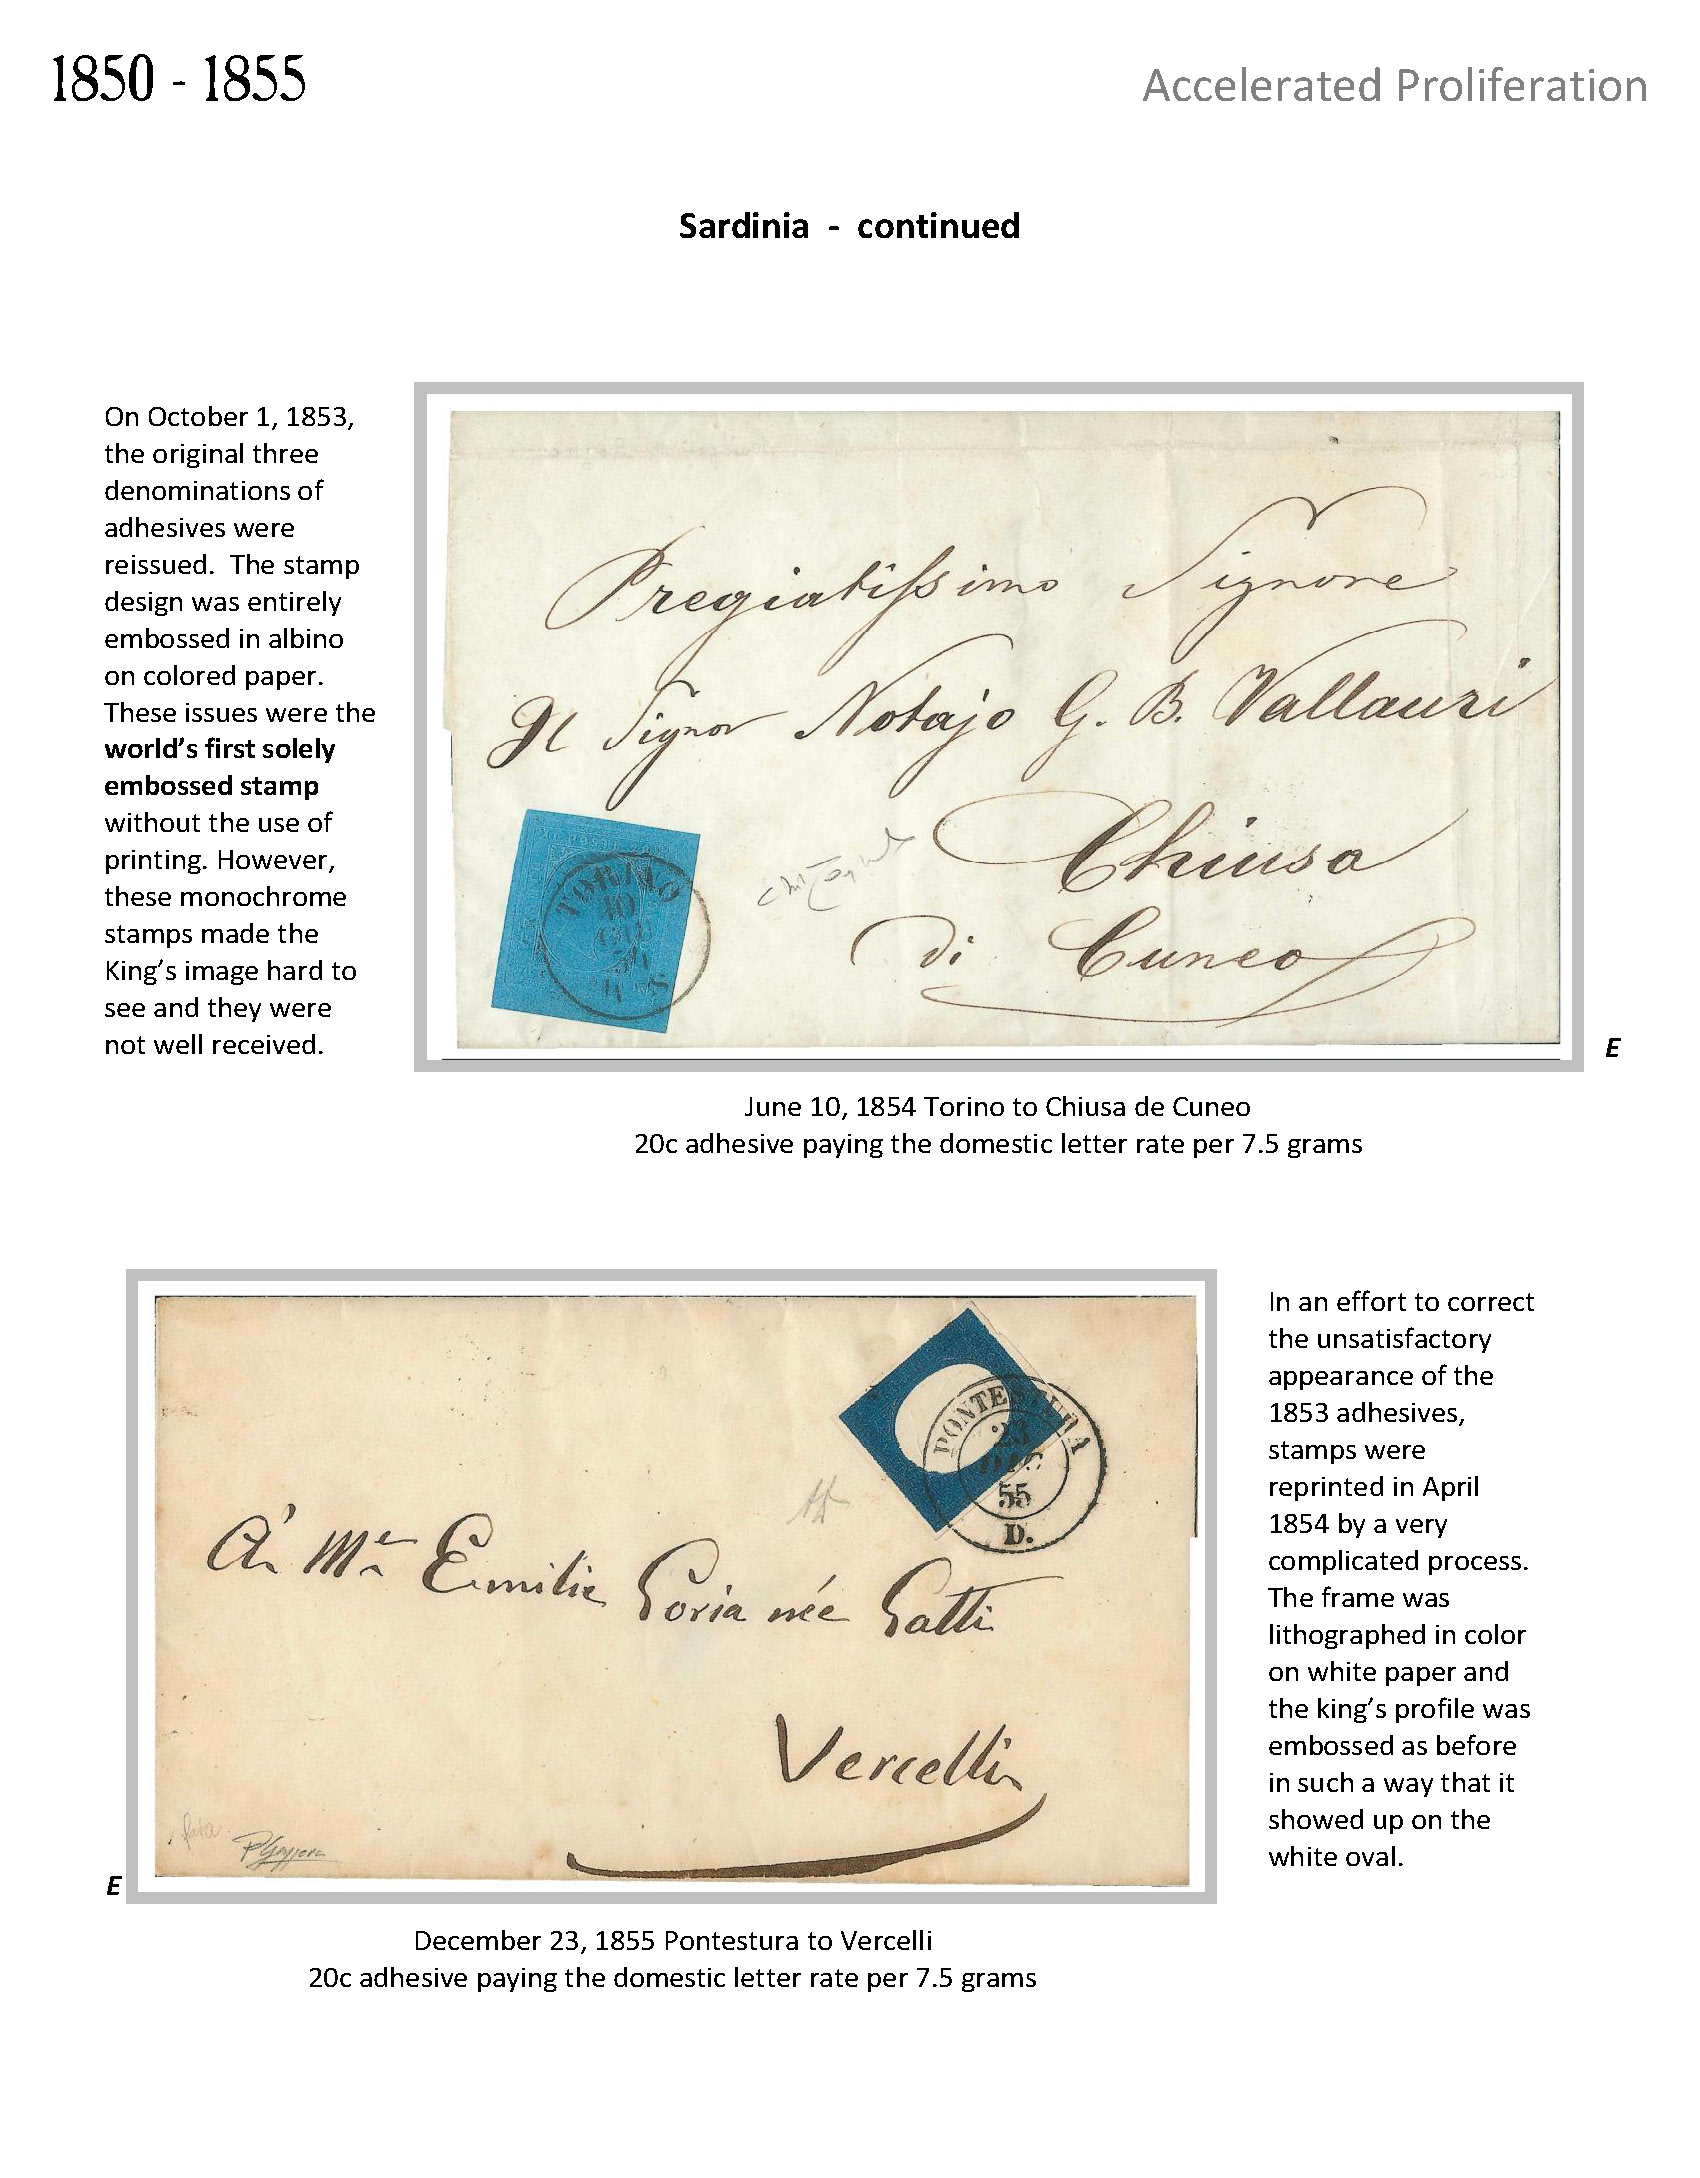 1850 - 1855
Accelerated Proliferation
Sardinia - continued
On October 1, 1853,
the original three
denominations of
adhesives were
reissued. The stamp
design was entirely
embossed in albino
on colored paper.
These issues were the
world's first solely
embossed stamp
without the use of
printing. However,
these monochrome
stamps made the
King's image hard to
see and they were
not well received.
Pregiatiſsimo Signore
Il Signor Notajo G. B. Vallauri
Chiusa
di Cuneo
TORINO
10
GIU
54
E
June 10, 1854 Torino to Chiusa de Cuneo
20c adhesive paying the domestic letter rate per 7.5 grams
PONTESTURA
23
DIC
55
D.
À Me Emilie Goria née Gatti
Vercelli
E
In an effort to correct
the unsatisfactory
appearance of the
1853 adhesives,
stamps were
reprinted in April
1854 by a very
complicated process.
The frame was
lithographed in color
on white paper and
the king's profile was
embossed as before
in such a way that it
showed up on the
white oval.
December 23, 1855 Pontestura to Vercelli
20c adhesive paying the domestic letter rate per 7.5 grams